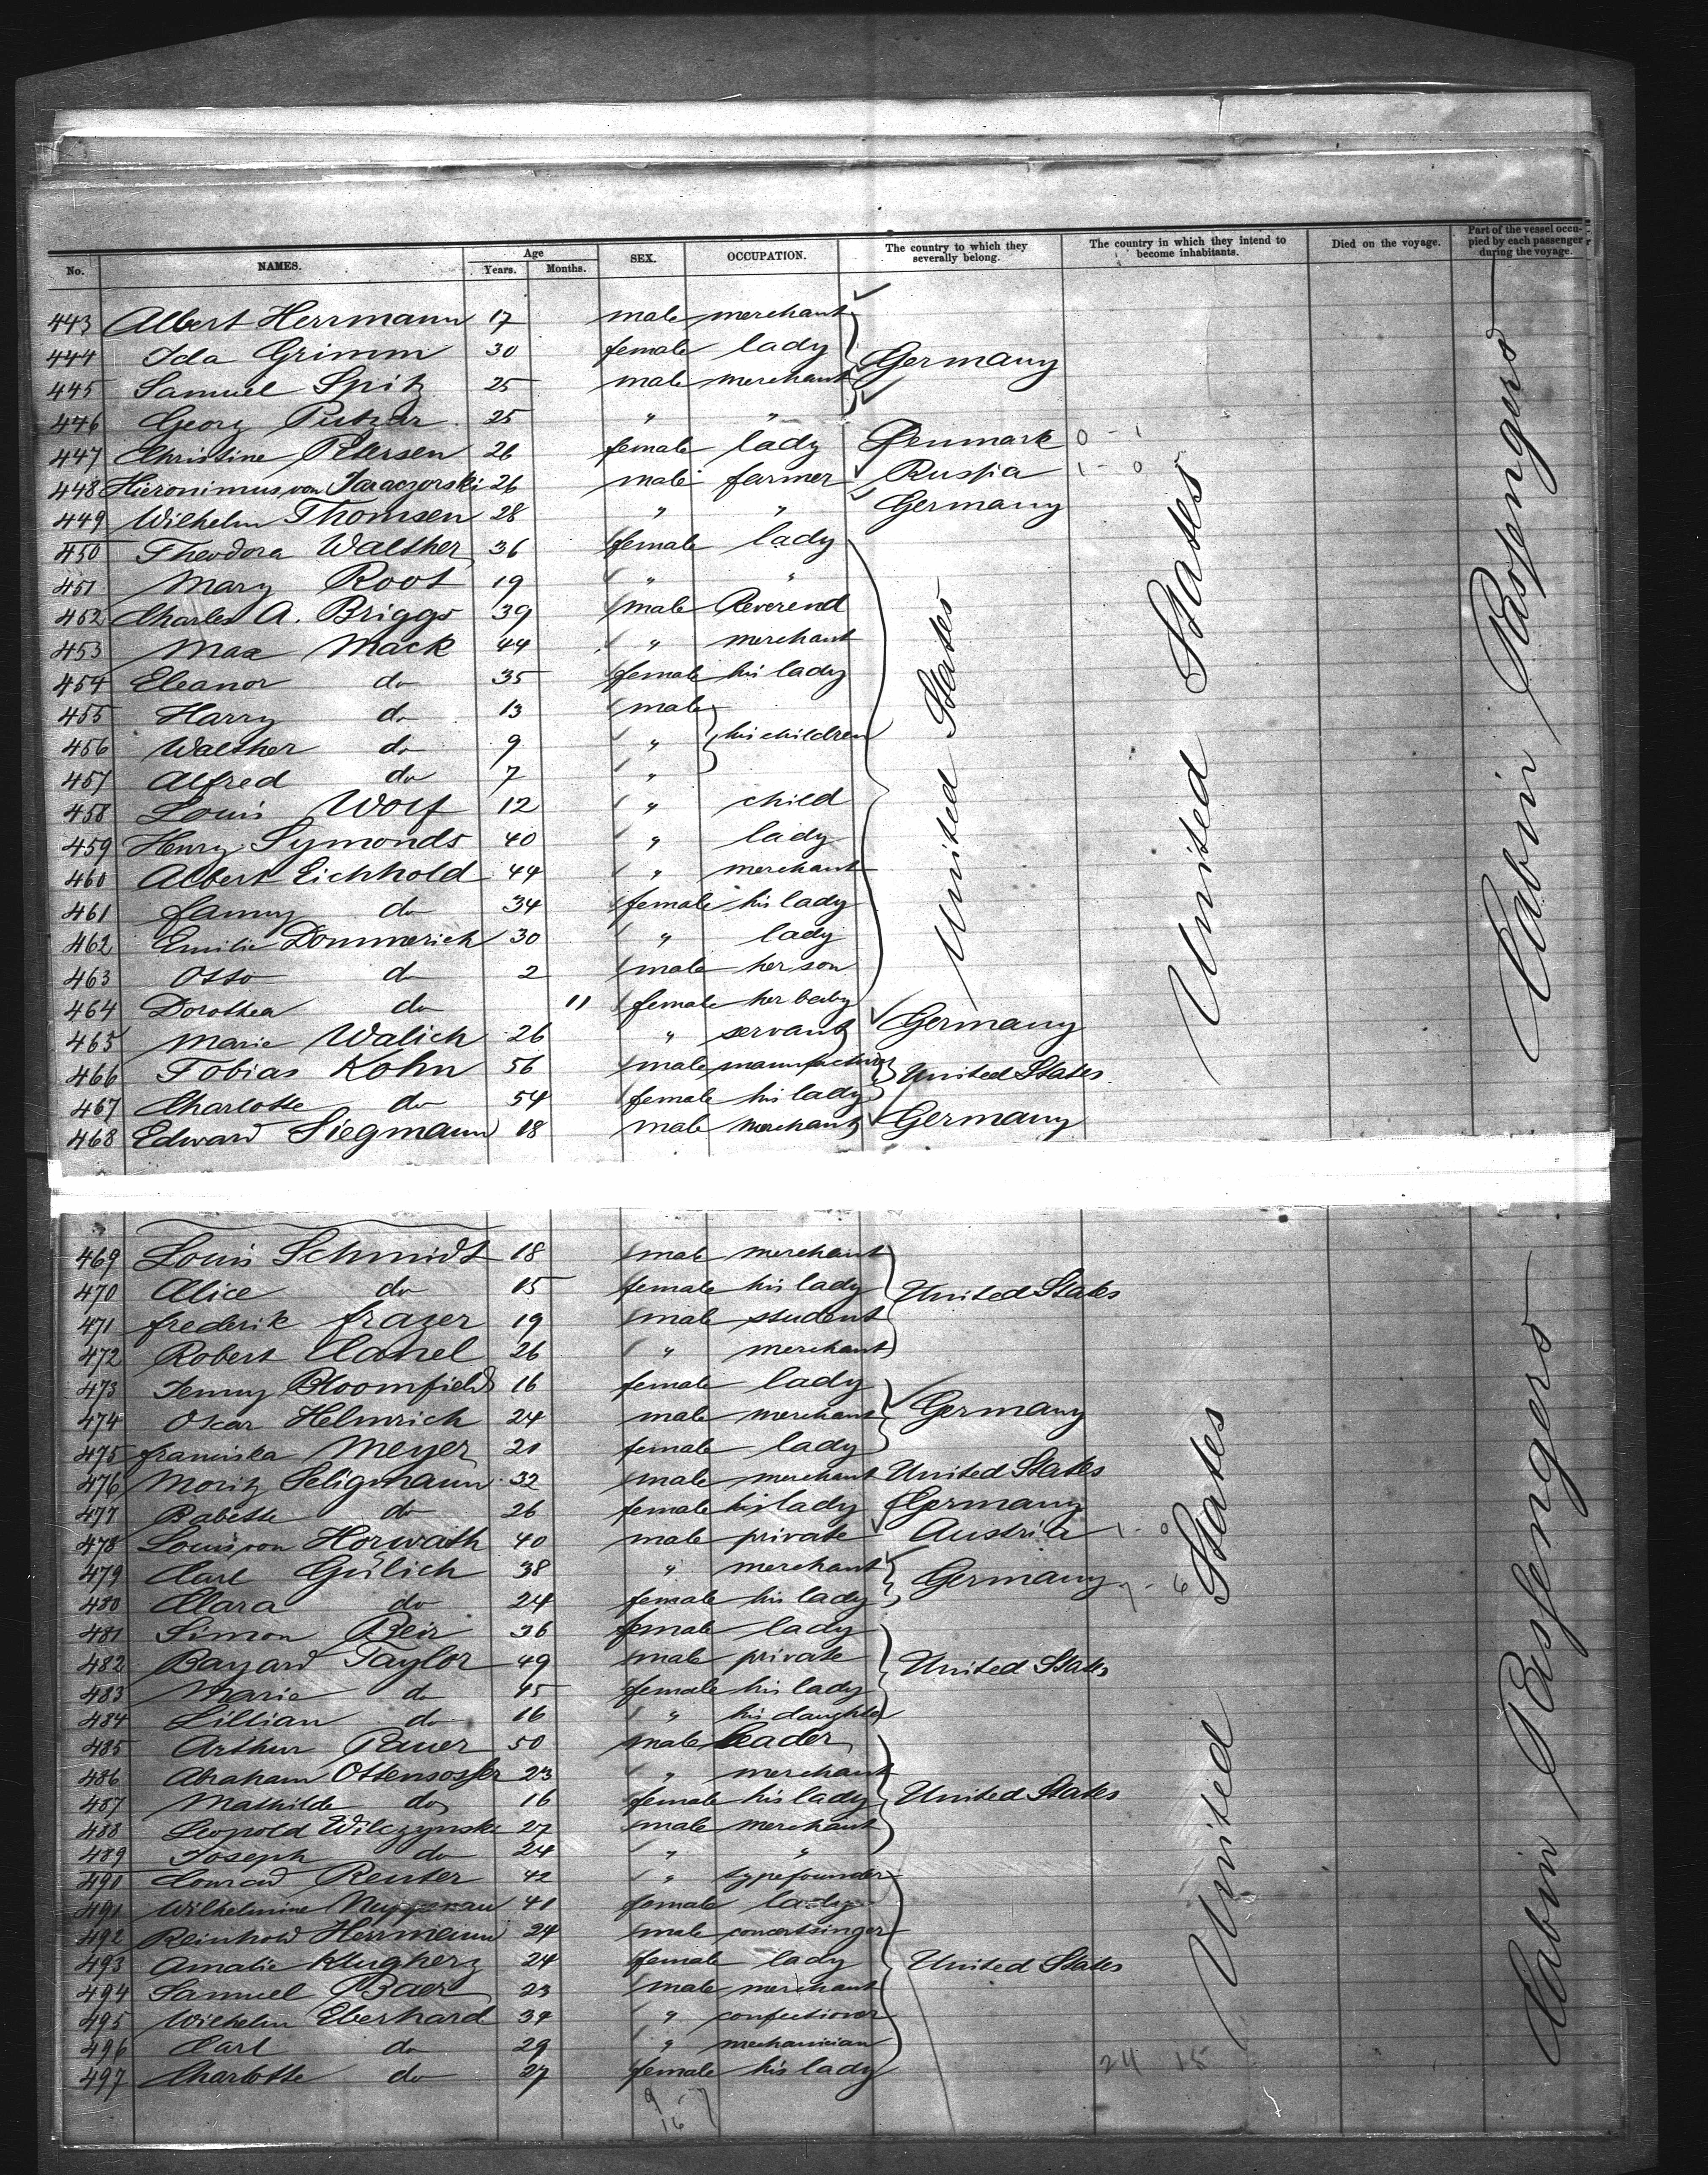 No. NAMES. Age Years. Months. SEX. OCCUPATION. The country to which they severally belong. The country in which they intend to become inhabitants. Died on the voyage. Part of the vessel occupied by each passenger during the voyage.
443 Albert Herrmann 17 male merchant
444 Ida Grimm 30 female lady Germany
445 Samuel Spitz 25 male merchant
446 Georg 25 " "
447 Christine Petersen 26 female lady Denmark 0 - 1
448 Hieronimus von 26 male farmer Russia 1 - 0
449 Wilhelm Thomsen 28 " " Germany
450 Theodora Walther 36 female lady
451 Mary Root 19 " "
452 Charles A. Briggs 39 male Reverend
453 Max Mack 44 " merchant
454 Eleanor do 35 female his lady
455 Harry do 13 male
456 Walther do 9 " his children
457 Alfred do 7 "
458 Louis Wolf 12 " child
459 Henry Symonds 40 " lady
460 Albert Eichhold 44 " merchant
461 Fanny do 34 female his lady
462 Emilie Dommerich 30 " lady
463 Otto do 2 male her son
464 Dorothea do 11 female her baby
United States
465 Marie Walich 26 " servant Germany
466 Tobias Kohn 56 male United States
467 Charlotte do 54 female his lady
468 Edward Siegmann 18 male merchant Germany
United States
Cabin Passengers
469 Louis Schmidt 18 male merchant
470 Alice do 15 female his lady United States
471 Frederik Frazer 19 male student
472 Robert 26 " merchant
473 Jenny Bloomfield 16 female lady
474 Oscar Helmrich 24 male merchant Germany
475 Franciska Meyer 21 female lady
476 Moritz Seligmann 32 male merchant United States
477 Babette do 26 female his lady Germany
478 Louis von Horwath 40 male private Austria 1 - 0
479 Carl Gülich 38 " merchant Germany 7 - 6
480 Clara do 24 female his lady
481 Simon 36 female lady
482 Bayard Taylor 49 male private United States
483 Marie do 45 female his lady
484 Lillian do 16 " his daughter
485 Arthur 50 male
486 Abraham Ottensosser 23 " merchant
487 Mathilde do 16 female his lady United States
488 Leopold Wilczynski 27 male merchant
489 Joseph do 24 " "
490 Conrad Reuter 42 " typefounder
491 Wilhelmine 41 female lady
492 Reinhold Herrmann 24 male concertsinger
493 Amalie Klugherz 24 female lady United States
494 Samuel Baer 23 male merchant
495 Wilhelm Eberhard 34 " confectioner
496 Carl do 29 " mechanician
497 Charlotte do 27 female his lady 24 15
United States
Cabin Passengers
9
16